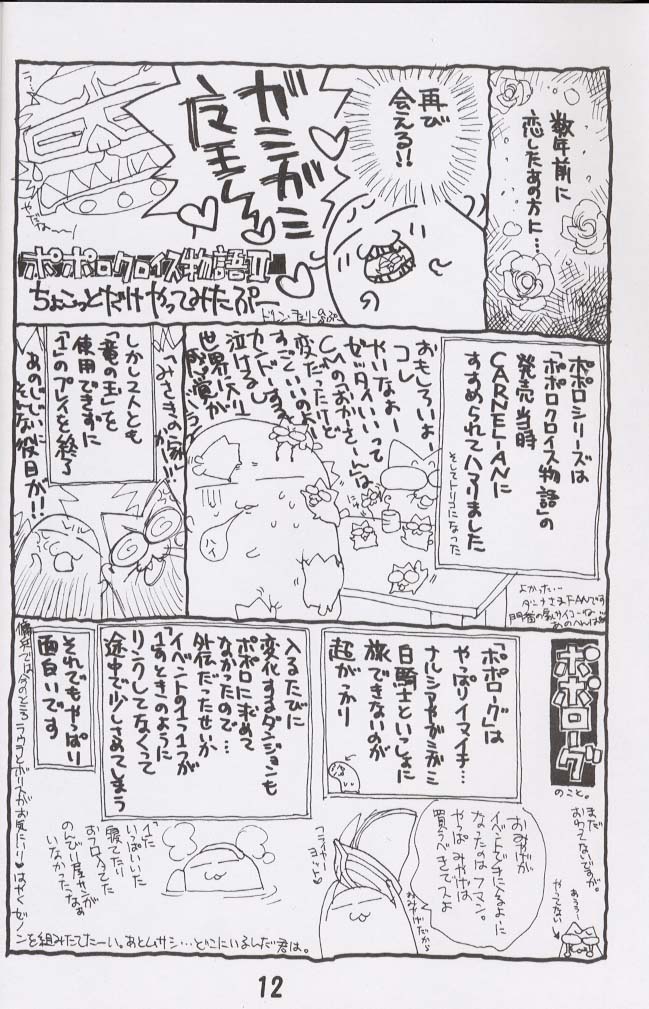 数年前に
恋したあの方に…
再び
会える!!
ガミガミ
魔王
ポポロクロイス物語Ⅱ
ちょこっとだけやってみたぷー
ポポロシリーズは
「ポポロクロイス物語」の
発売当時
CARNELIANに
すすめられてハマりました
そしてトリコになった
おもしろいよー
コレ
やいなよー
ゼッタイいいって
CMの「おかーさーん」は
変だったけど
すごくいいのよー
カンドーするよ
泣けるし
世界に入り
ハイ
よかった…
「みさきの家」
かに!!
しかし2人とも
「竜の玉」を
使用できずに
「1」のプレイを終了
あのじじいに
そんな役目が!!
ポポローグ
のこと。
まだ
おわってないですが。
やってない
「ポポローグ」は
やっぱりイマイチ…
ナルシアやガミガミ
白騎士といっしょに
旅できないのが
超がっかり
おみやげが
イベントでキに入るように
なったのはフマン。
やっぱみやげは
買うべきでスよ
おみやげだから
入るたびに
変化するダンジョンも
ポポロに求めて
なかったので…
外伝だったせいか
イベントの1つ1つが
「1」のときのように
リンクしてなくって
途中で少しさめてしまう
それでもやっぱり
面白いです
「1」に
いっぱいいた
寝てたり
おフロ入ってた
のんびり屋サンが
いなかったなあ
傭兵では今のところ
ラウラとボリスがお気にいり♥はやくゼノ
ンを組みたてたーい。あとムサシ…どこにいるんだ君は。
12